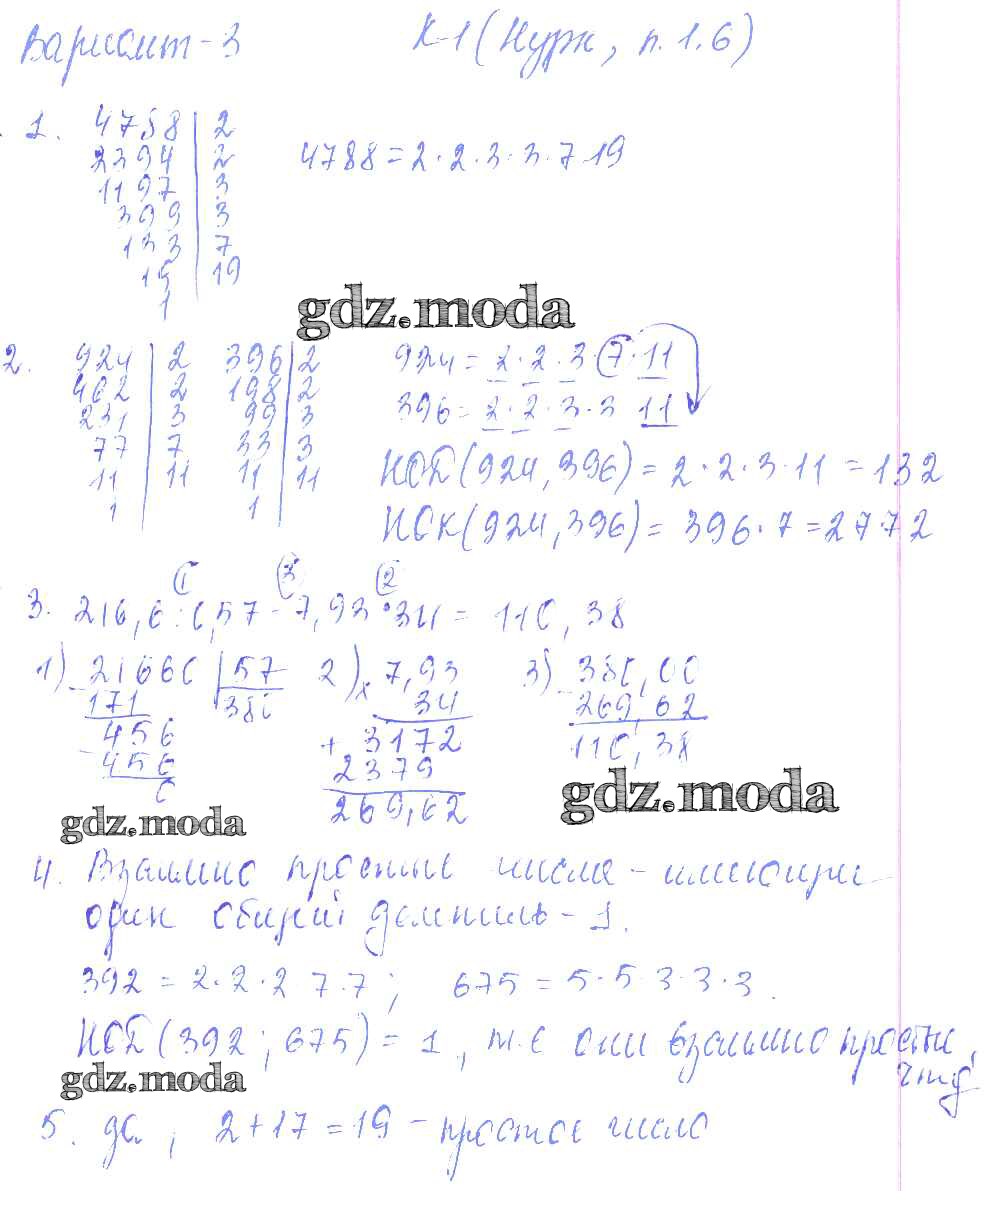 Вариант-3 К-1 (Нурк, п. 1.6)
1. 4788 | 2
2394 | 2 4788 = 2 · 2 · 3 · 3 · 7 · 19
1197 | 3
399 | 3
133 | 7
19 | 19
1
gdz.moda
2. 924 | 2 396 | 2 924 = 2 · 2 · 3 · 7 · 11
462 | 2 198 | 2 396 = 2 · 2 · 3 · 3 11
231 | 3 99 | 3
77 | 7 33 | 3 НОД (924, 396) = 2 · 2 · 3 · 11 = 132
11 | 11 11 | 11
1 1 НОК (924, 396) = 396 · 7 = 2772
1 3 2
3. 216,6 : 0,57 - 7,93 · 34 = 110,38
1) 21660 | 57 2) x 7,93 3) - 380,00
171 380 34 269,62
- 456 + 3172 110,38
456 2379
0 269,62
gdz.moda
gdz.moda
4. Взаимно простые числа - имеющие
один общий делитель - 1.
392 = 2 · 2 · 2 · 7 · 7 ; 675 = 5 · 5 · 3 · 3 · 3.
НОД (392 ; 675) = 1, т.е они взаимно просты,
чтд
gdz.moda
5. да, 2 + 17 = 19 - простое число